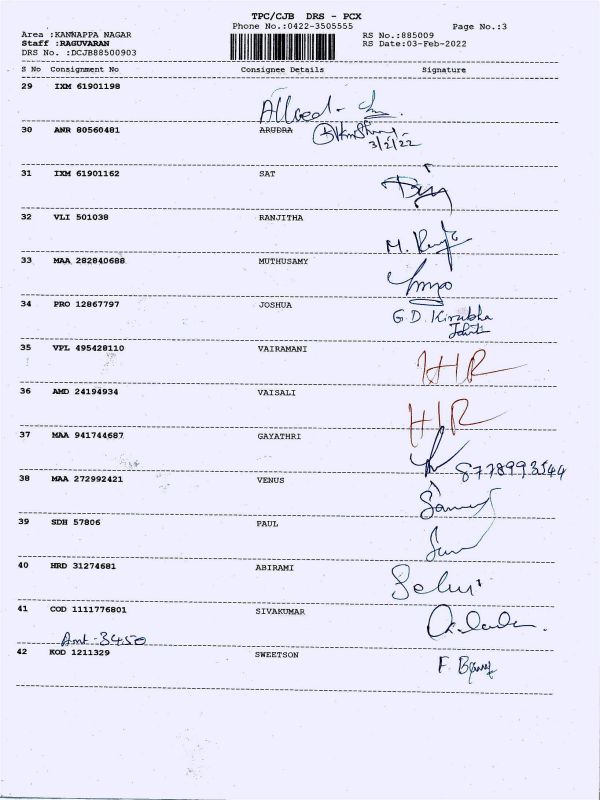 TPC/CJB DRS - PCX
Phone No.:0422-3505555 Page No.:3
Area :KANNAPPA NAGAR RS No.:885009
Staff :RAGUVARAN RS Date:03-Feb-2022
DRS No. :DCJB88500903
S No Consignment No Consignee Details Signature
29 IXM 61901198
30 ANR 80560481 ARUDRA
3/2/22
31 IXM 61901162 SAT
32 VLI 501038 RANJITHA
M.
33 MAA 282840688 MUTHUSAMY
34 PRO 12867797 JOSHUA
G.D. Kirubha
35 VPL 495428110 VAIRAMANI
HR
36 AMD 24194934 VAISALI
HR
37 MAA 941744687 GAYATHRI
8778993544
38 MAA 272992421 VENUS
39 SDH 57806 PAUL
40 HRD 31274681 ABIRAMI
41 COD 1111776801 SIVAKUMAR
Amt-3450
42 KOD 1211329 SWEETSON
F.